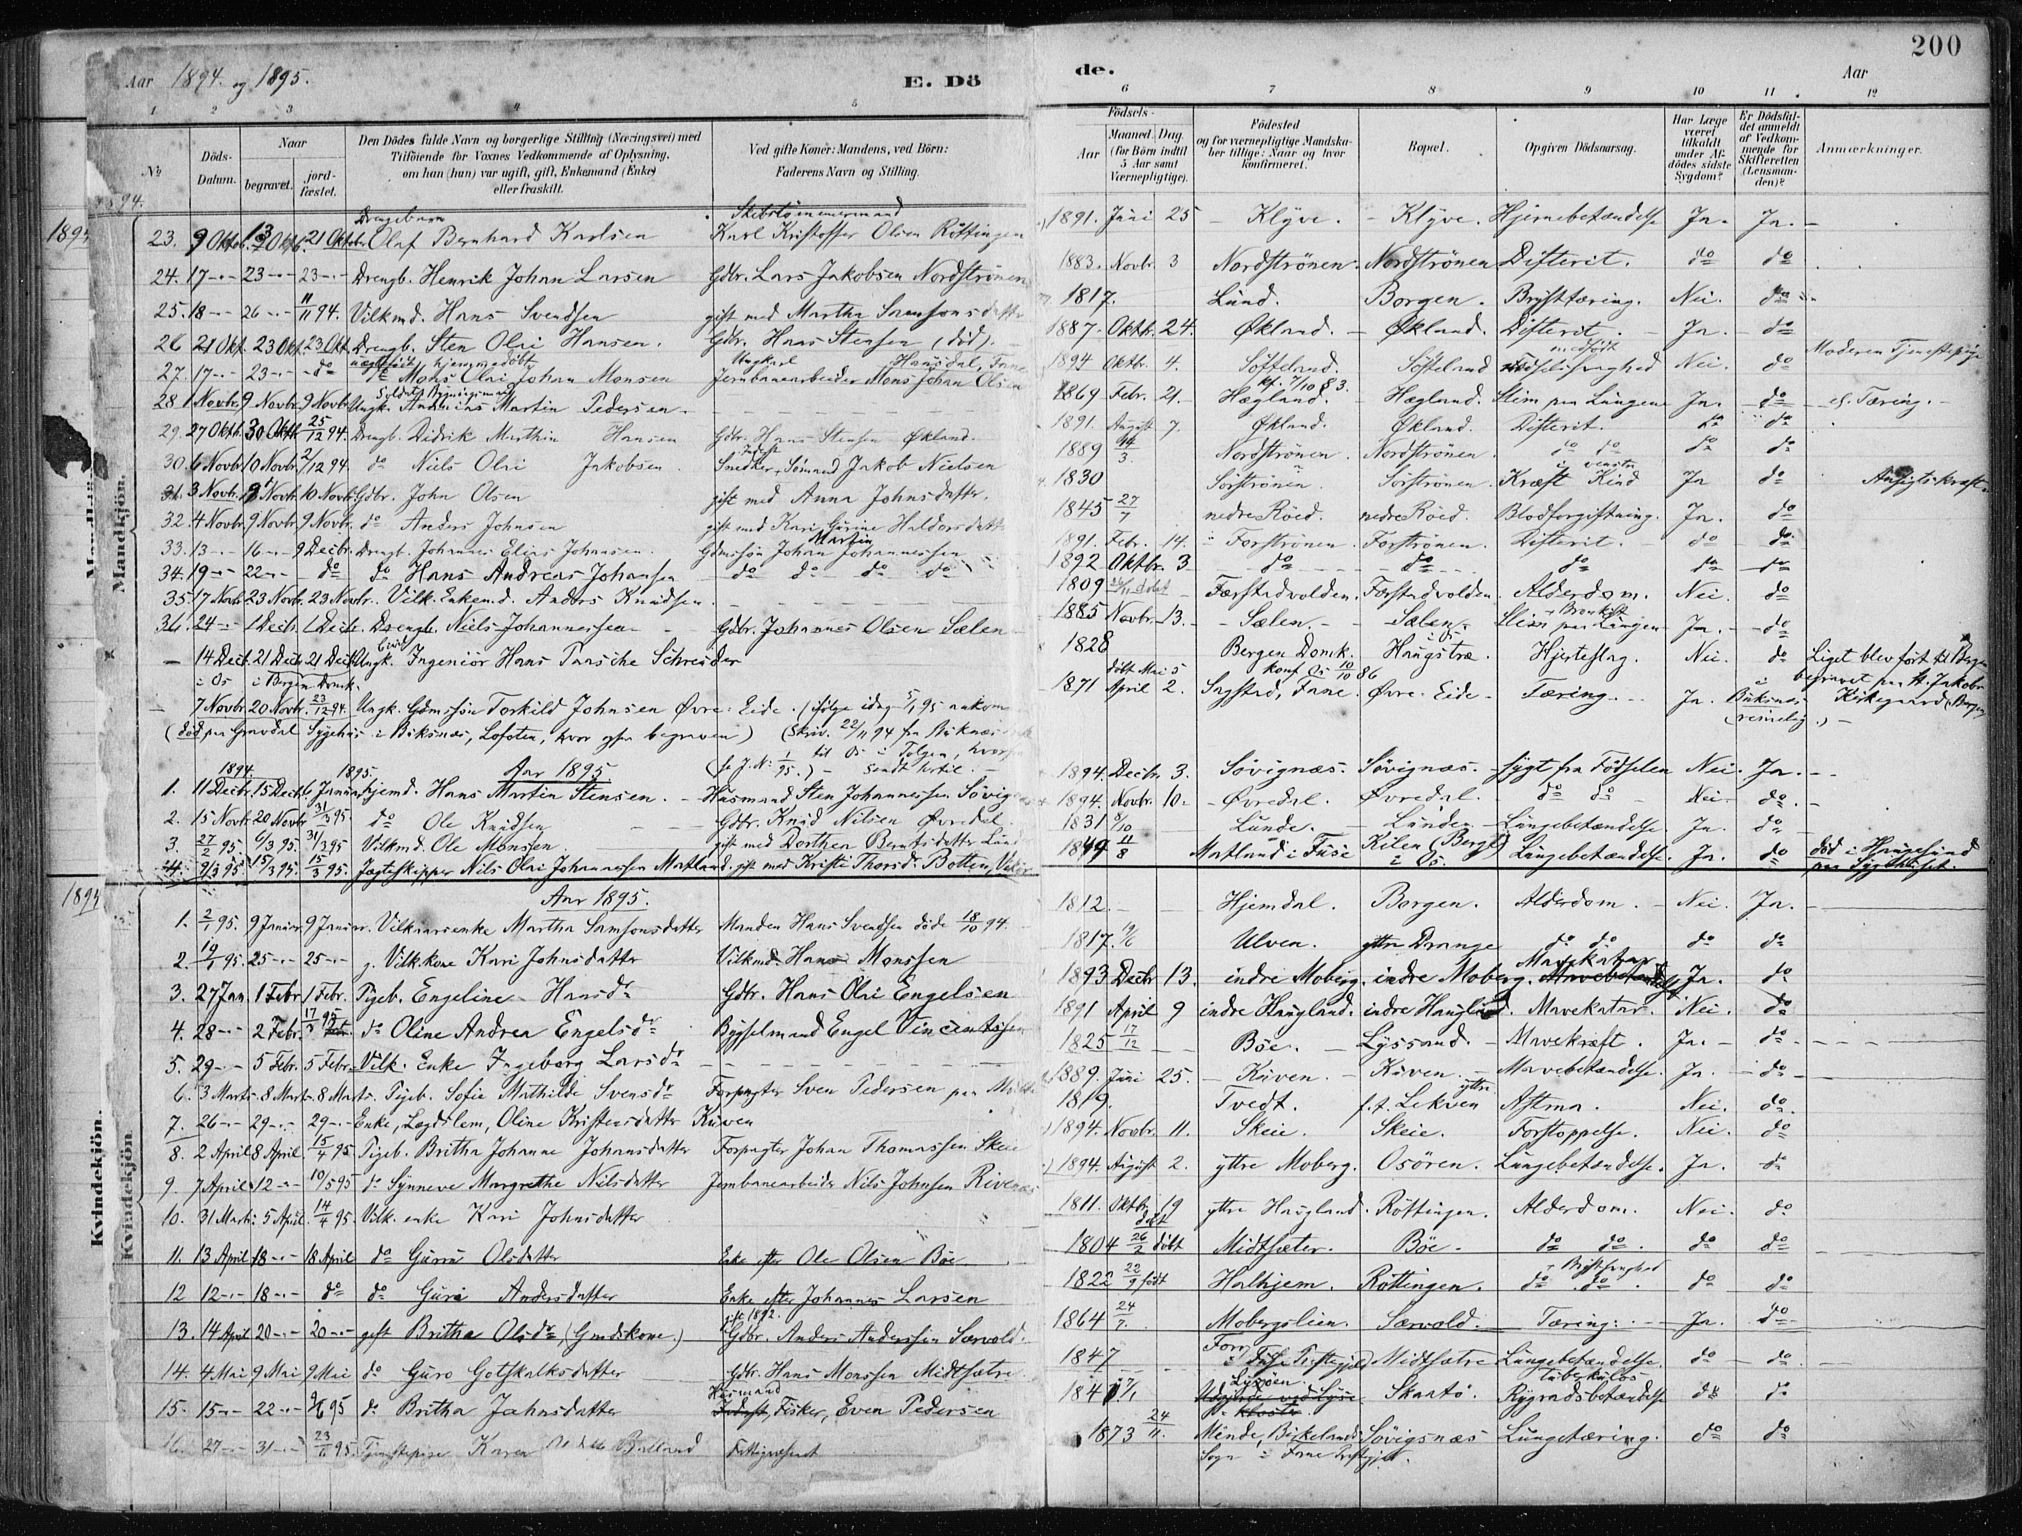 200
Aar 1894. og 1895.
E. Dö
de.
Aar
1 2 3 4 5 6 7 8 9 10 11 12
No
Döds-Datum.
Naar
begravet.
jord-fæstet.
Den Dödes fulde Navn og borgerlige Stilling (Næringsvei) med Tilföiende for Voxnes Vedkommende af Oplysning, om han (hun) var ugift, gift, Enkemand (Enke) eller fraskilt.
Ved gifte Koner: Mandens, ved Börn: Faderens Navn og Stilling.
Födsels-
Aar
Maaned Dag.
(for Börn indtil 5 Aar samt Værnepligtige).
Födested og for værnepligtige Mandska-ber tillige: Naar og hvor konfirmeret.
Bopæl.
Opgiven Dödsaarsag.
Har Læge været tilkaldt under Af-dödes sidste Sygdom?
Er Dödsfal-det anmeldt af Vedkom-mende for Skifteretten (Lensman-den)?
Anmærkninger.
Mandkjön.
23. 9 Oktbr. 13 Oktb. 21 Oktbr Drengebarn Olaf Bernhard Karlsen Skibstömmermand Karl Kristoffer Olsen Röttingen 1891. Juni 25 Klyve. Klyve. Hjernebetændelse Ja. Ja.
24. 17 23 23 Drengb. Henrik Johan Larsen Gdbr. Lars Jakobsen Nordströnen 1883. Novbr. 3 Nordströnen. Nordströnen Difterit. do do
25. 18 26 11/11 94. Vilkmd. Hans Svendsen gift med Martha Samsonsdatter 1817. Lund. Borgen. Brysttæring. Nei. do
26 21 Okt. 23 Okt. 23 Okt. Drengb. Sten Olai Hansen. Gdbr. Hans Stensen (död). 1887. Oktb. 24. Økland. Økland. Difterit. Ja. do
27. 17 23 do uægtefödt, hjemmedöbt Mons Olai Johan Monsen Ungkarl Jernbanearbeider Mons Johan Olsen Haugsdal, Fane 1894 Oktbr. 4. Søfteland. Søfteland medfödt Nei. do Moderen Tjenestepige
28 1 Novbr. 9 Novbr. 9 Novbr. Ungk. Andreas Martin Pedersen. 1869 Febr. 21. kf. 7/10 83. Hegland. Hægland. Slim paa Lungene Ja. do Tæring.
29. 27 Oktb. 30 Oktb. 25/12 94. Drengb. Didrik Marthin Hansen Gdbr. Hans Stensen Økland. 1891. August 7. Økland. Økland. Difterit. do do
30. 6 Novbr. 10 Novbr. 2/12 94. do Niels Olai Jakobsen Snedker, Sömand Jakob Nielsen 1889 14/3. Nordströnen. Nordströnen. do do do do
31. 3 Novbr. Novbr. 10 Novbr. Gdbr. John Olsen gift med Anna Johnsdatter. 1830 Sörströnen. Sörströnen. Kræft i venstre Kind Ja do
32. 4 Novbr. 9 Novbr. 9 Novbr. do Anders Johnsen gift med Kari Gurine Haldorsdatter 1845 27/7 nedre Röed. nedre Röed. Blodforgiftning. Ja. do
33. 13 16 9 Decbr. Drengb. Johannes Elias Johansen. Gdmssön Johan Martin Johannessen 1891. Febr. 14. Forströnen. Forströnen. Difterit. do do
34. 19 22 do do Hans Andreas Johansen do do do do 1892 Oktbr. 3 do do do do do
35 17 Novb. 23 Novbr. 23 Novbr. Vilk. Enkemd. Anders Knudsen. 1809 Færstadvolden. Færstadvolden. Alderdom. Nei. do
36. 24 1 Decb. 1 Decb. Drengb. Niels Johannessen Gdbr. Johannes Olsen Sælen 1885 Novbr. 13. Sælen. Sælen. Slim paa Lungen Ja. do
14 Decb. 21 Decb. 21 Decb. Ungk. Ingeniör Hans Paasche Schreuder 1828 Bergen Domk. Haugstræ. Hjerteslag. Nei. do Liget blev fört til Bergen begravet paa St. Jakobs Kirkegaard, Bergen
i Os i Bergen Domk.
7 Novbr. 20 Novbr. 23/12 94. Ungk. Gdmssön Torkild Johnsen Øvre Eide. (ifölge idag 5/1 95 ankom 1871 April 2. konf. Os 10/10 86 Sagstad, Fane. Øvre Eide. Tæring. Ja. Buksnes
(död paa Gravdal Sygehus i Buksnæs, Lofoten, hvor ogsaa begraven) (Skriv. 22/11 94 fra Buknæs
til Os i Tolgen, hvorfra sendt hertil.
1894. 1895. Aar 1895
1. 11 Decbr. 15 Decb. 6 Januar Hjemd. Hans Martin Stensen. Husmand Sten Johannessen Sövignæs 1894. Decbr. 3. Sövignæs. Sövignæs. sygt fra Födselen Nei. Ja.
2. 15 Novb. 20 Novbr. 31/3 95. do Ole Knudsen Gdbr. Knud Nilsen Øvredal. 1894. Novbr. 10. Øvredal. Øvredal. do do Nei. do.
3. 27/2 95. 6/3 95. 31/3 95 Vilkmd. Ole Monsen. gift med Dorthea Berntsdatter Lund 1831 8/10 Lunde. Lunden. Lungebetændelse. Ja. do
4. 9/3 95. 15/3 95. 15/3 95. Jægteskipper Nils Olai Johannessen Matland. gift med Kristi Thorsd. Botten, Vikör 1849 11/8 Matland i Fuse Kilen (Berge) i Os. Lungebetændelse. Ja. do död i Haugesund paa Sygehuset.
Kvindekjön.
Aar 1895.
1. 2/1 95. 9 Januar 9 Januar. Vilkaarsenke Martha Samsonsdatter Manden Hans Svendsen döde 18/10 94. 1812. Hjemdal. Borgen. Alderdom. Nei. Ja.
2. 19/1 95. 25 25 g. Vilk.kone Kari Johnsdatter Vilkmd. Hans Monssen 1817. 19/6 Ulven. yttre Drange do do do do
3. 27 Jan. 1 Febr. 1 Febr. Pigeb. Engeline Hansdr. Gdbr. Hans Olai Engelsen 1893 Decbr. 13. indre Moberg. indre Moberg. Mavekatar Ja. do
4. 28 2 Febr. 17/3 95 do Oline Andrea Engelsdr. Bygselmand Engel Vincentsen 1891 April 9 indre Haugland. indre Haugland. Mavekatar. Nei. do
5. 29 5 Febr. 5 Febr. Vilk. Enke Ingeborg Larsdr. 1825 17/12 Böe. Lyssand. Mavekræft. Ja. do
6. 3 Marts. 8 Marts. 8 Marts. Pigeb. Sofie Mathilde Svensdr. Forpagter Sven Pedersen paa 1889. Juni 25. Kuven. Kuven. Mavebetændelse. Ja. do
7. 26 29 29 Enke, Lægdslem, Oline Kristensdatter Kuven 1819. Tvedt. f.f. Lekven yttre Astma. Nei. do.
8. 2 April 8 April. 15/4 95 Pigeb. Britha Johanne Johansdatter Forpagter Johan Thomassen Skeie 1894. Novbr. 11. Skeie. Skeie. Forstoppelse. Nei. do
9. 7 April 12 10/5 95 do Synneve Margrethe Nilsdatter Jernbanearbeider Nils Johnsen Rivenæs 1894. August 2. yttre Moberg. Osören. Lungebetændelse. Ja. do
10. 31 Marts 5 April. 14/4 95. Vilk. enke Kari Johnsdatter 1811. Oktbr. 19 yttre Haugland. Röttingen. Alderdom. Nei. do
11. 13 April 18 18 April do Guru Olsdatter Enke efter Ole Olsen Böe. 1804 26/2 döbt Midtsæter. Böe. do do do do
12 12 18 do do Guri Andersdatter Enke efter Johannes Larsen 1822 22/9 födt Halhjem. Röttingen. do do Brystsvaghed do do
13. 14 April 20 20 gift Britha Olsdr. (Gmdskone.) gift 1892. Gdbr. Anders Anderssen Særvold. 1864 24/7. Mobergslien. Særvold. Tæring. Ja. do
14. 4 Mai 9 Mai 9 Mai do Guro Gotskalksdatter Gdbr. Hans Monssen Midtsætre. 1847 i Fuse Præstegjeld Midtsætre Lungebetændelse. do do
15. 15 22 9/6 95 do Britha Johnsdatter Husmand Fisker, Even Pedersen 1841 Lysöen. Skaatö. tuberkulös Rygradsbetændelse do do
16. 27 31 23/6 95. Tjenestepige Karen Fattiglem 1873 24/11. Minde, Birkelands Sogn i Fane Præstegjeld. Sövigsnæs Lungetæring. do do